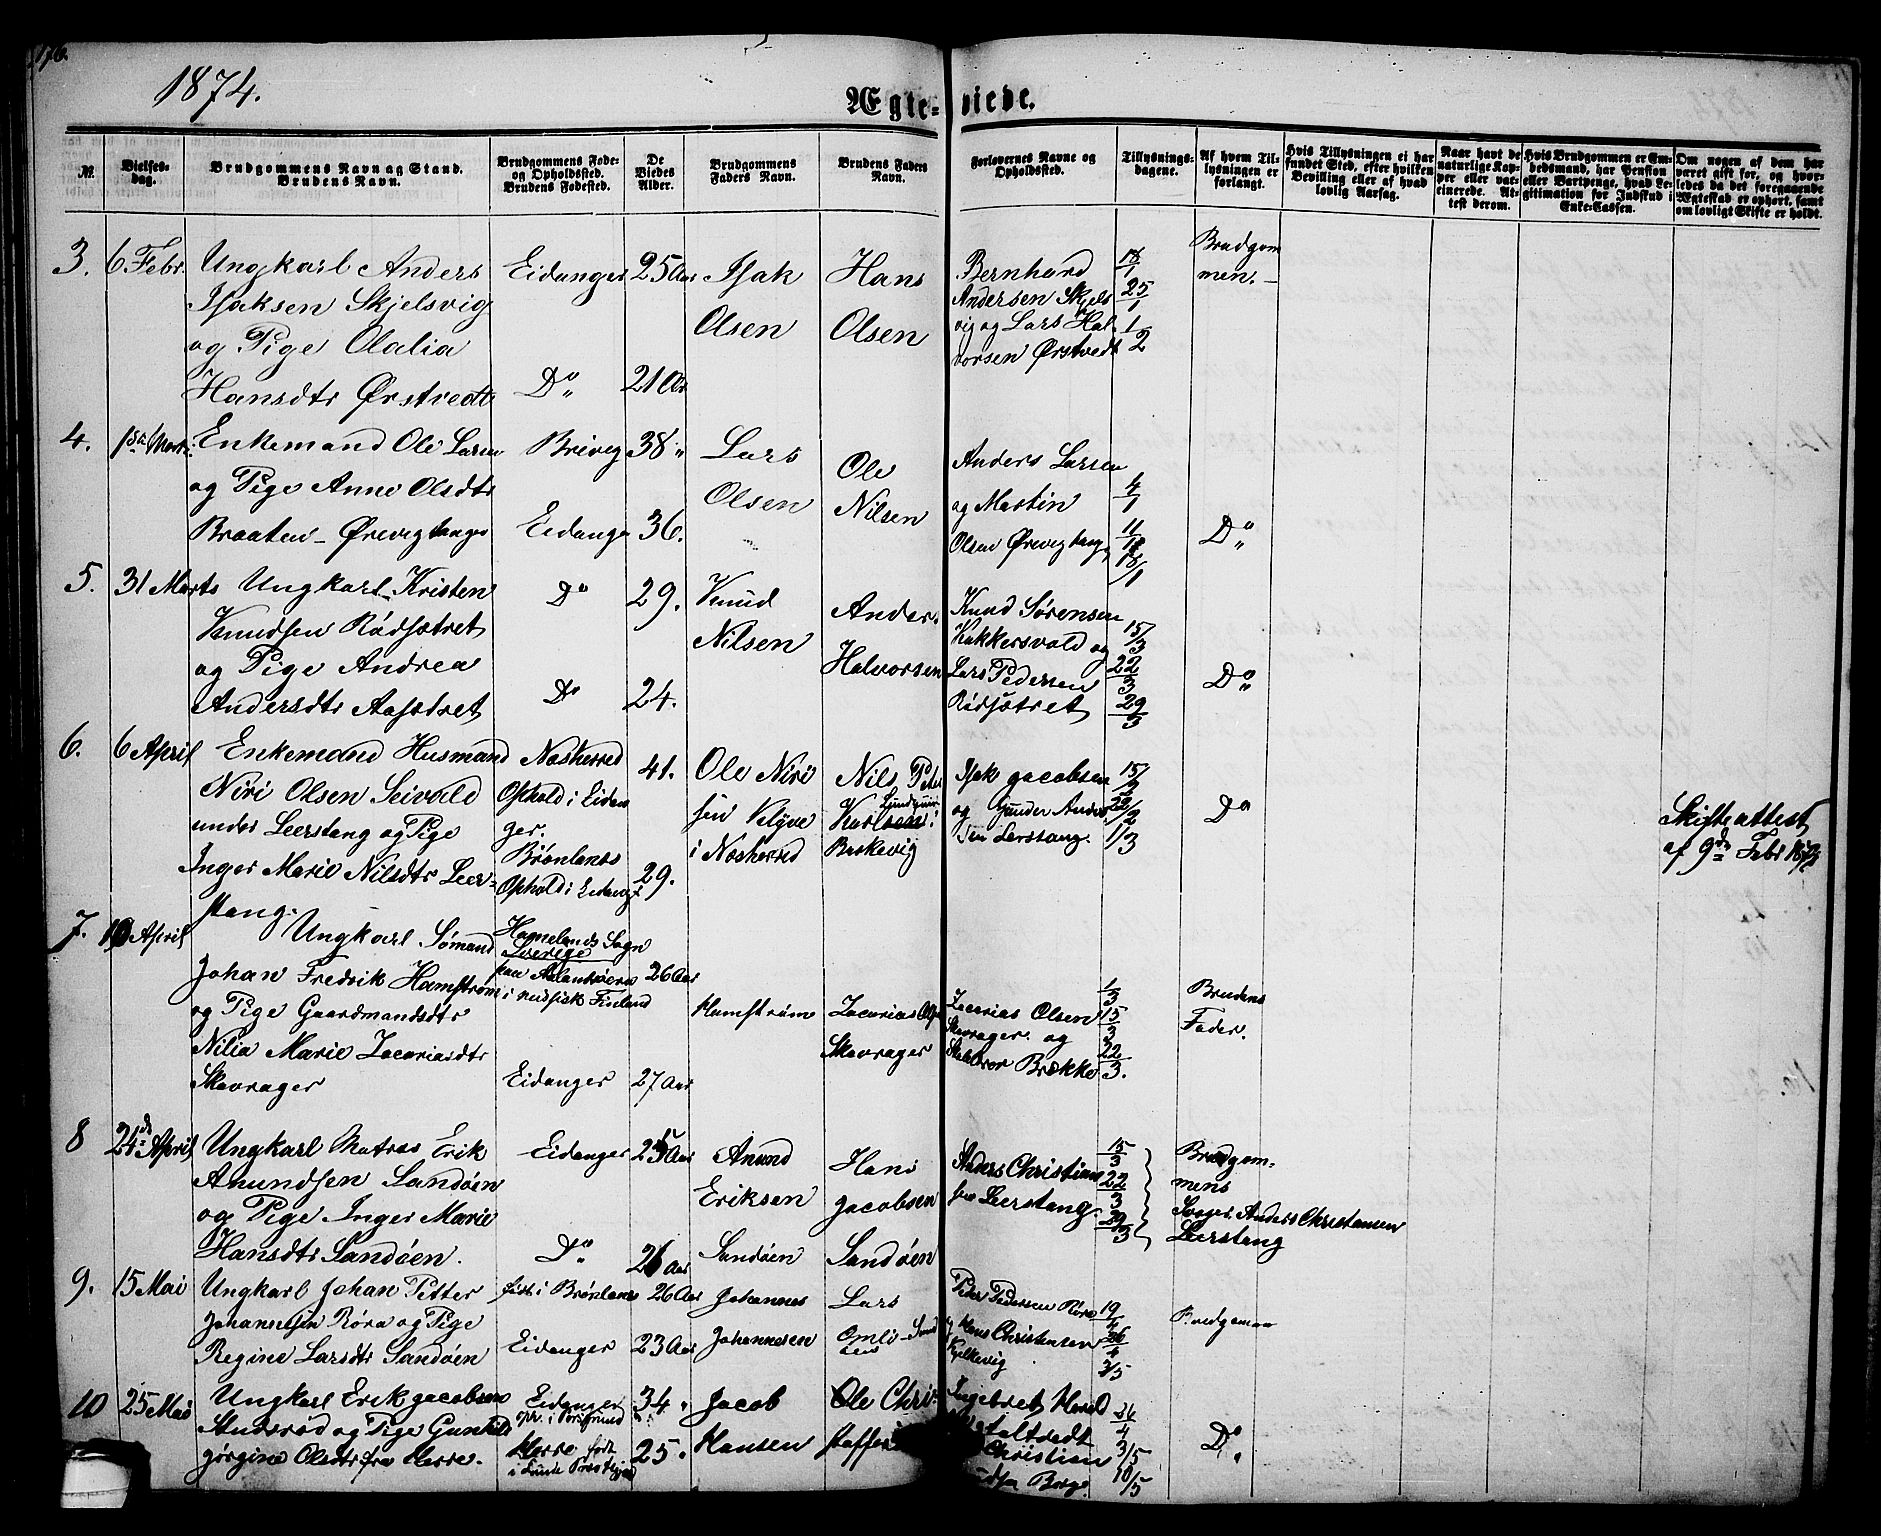 1874.
Ægte-viede.
№.
Vielses-
dag.
Brudgommens Navn og Stand.
Brudens Navn.
Brudgommens Føde-
og Opholdssted.
Brudens Fødested.
De
Viedes
Alder.
Brudgommens
Faders Navn.
Brudens Faders
Navn.
Forlovernes Navne og
Opholdssted.
Tillysnings-
dagene.
Af hvem Til-
lysningen er
forlangt.
Hvis Tillysningen ei har
fundet Sted, efter hvilken
Bevilling eller af hvad
lovlig Aarsag.
Naar havt de
naturlige Kop-
per eller vac-
cinerede. At-
test derom.
Hvis Brudgommen er Em-
bedsmand, har Pension
eller Vartpenge, hvad Le-
gitimation for Indskud i
Enke-Cassen.
Om nogen af dem har
været gift før, og hvor-
ledes da det foregaaende
Ægteskab er ophørt, samt
om lovligt Skifte er holdt.
3.
6 Febr.
Ungkarl Anders
Isaksen Skjelsvig
og Pige Olalia
Hansdtr Ørstvedt
Eidanger
Do
25 Aar
21 Aar
Isak
Olsen
Hans
Olsen
Bernhard
Andersen Skjels
vig og Lars Hal
vorsen Ørstvedt
18/1
25/1
1/2
Brudgom
men.
4.
Enkemand Ole Larsen
og Pige Anne Olsdtr
Braaten - Ørevigtangen
Brevig
Eidanger
38
36.
Lars
Olsen
Ole
Nilsen
Anders Larsen
og Martin
Olsen Ørevigtangen
4/1
11/1
18/1
Do
5.
31 Marts
Ungkarl Kristen
Knudsen Rødsætret
og Pige Andrea
Andersdtr Aasætret
Do
Do
29.
24.
Knud
Nilsen
Anders
Halvorsen
Knud Sørensen
Kokkersvold og
Lars Pedersen
Rødsætret
15/3
22/3
29/3
Do
6.
6 April
Enkemand Husmand
Niri Olsen Seivald
under Leerstang og Pige
Inger Marie Nilsdtr Leer-
stang.
Næsherred
Ophold i Eidan
ger.
Brønlanes
Ophold i Eidanger
41.
29.
Ole Niri
sen
i Næsherred
Nils Peter
Isak Jacobsen
og Gunder Anders
sen Lerstang.
15/2
22/2
1/3
Do
Skifteattest
af 9de Febr 1874
7.
10 April
Ungkarl Sømand
Johan Fredrik Hamstrøm
og Pige Gaardmandsdtr
Nilia Marie Zacariasdtr
Skavrager
Hamelands Sogn
Sverige
paa Aalandsøerne
i russisk Finland
Eidanger
26 Aar
27 Aar
Hamstrøm
Zacarias Olsen
Skavrager
Zacarias Olsen
Skavrager og
Brække
1/3
15/3
22/3.
Brudens
Fader.
8
24de April
Ungkarl Matias Erik
Anundsen Sandøen
og Pige Inger Marie
Hansdtr Sandøen.
Eidanger
Do
26 Aar
Anund
Eriksen
Sandøen
Hans
Jacobsen
Sandøen
Anders Christian
sen Leerstang.
15/3
22/3
29/3
Brudgom-
mens
Svoger Anders Christensen
Leerstang
9.
15 Mai
Ungkarl Johan Petter
Johannesen Røra og Pige
Regine Larsdtr Sandøen
født i Brønlanes
Eidanger
26 Aar
23 Aar
Johannes
Johannesen
Lars
Peder Pedersen Røra
og Hans Christensen
Kjelkevig
19/4
26/4
3/5
Brudgoman
10
25 Mai
Ungkarl Erik Jacobsen
og Pige Gunhild
Jørgine Olsdtr fra Herre.
Eidanger
opr. i Porsgrund
Herre født
34
25
Jacob
Hansen
Ole Chri
stoffer
Ingebret
Christian
Borge.
26/4
3/5
10/5
Do